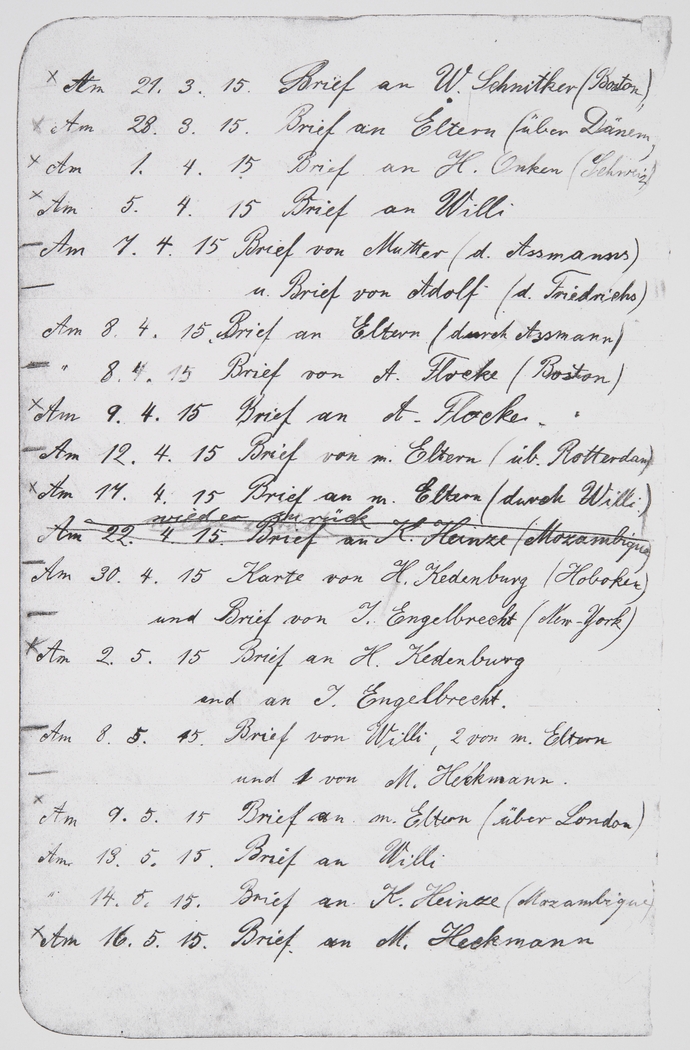 × Am 21. 3. 15. Brief an W. Schnitker (Boston),
× Am 28. 3. 15. Brief an Eltern (über Dänem.)
× Am 1. 4. 15 Brief an H. Onken (Schweiz)
× Am 5. 4. 15 Brief an Willi
– Am 7. 4. 15 Brief von Mutter (d. Assmanns)
– u. Brief von Adolf (d. Friedrichs)
Am 8. 4. 15. Brief an Eltern (durch Assmann)
– " 8. 4. 15 Brief von A. Flocke (Boston)
× Am 9. 4. 15 Brief an A. Flocke. "
– Am 12. 4. 15 Brief von m. Eltern (üb. Rotterdam)
× Am 17. 4. 15 Brief an m. Eltern (durch Willi)
wieder zurück
Am 22. 4. 15. Brief an K. Heinze (Mozambique)
– Am 30. 4. 15 Karte von H. Kedenburg (Hoboken)
– und Brief von J. Engelbrecht (New-York)
× Am 2. 5. 15 Brief an H. Kedenburg
und an J. Engelbrecht.
– Am 8. 5. 15. Brief von Willi, 2 von m. Eltern
– und 1 von M. Heckmann.
× Am 9. 5. 15 Brief an m. Eltern (über London)
Am. 13. 5. 15. Brief an Willi
" 14. 5. 15. Brief an K. Heinze (Mozambique)
× Am 16. 5. 15. Brief an M. Heckmann